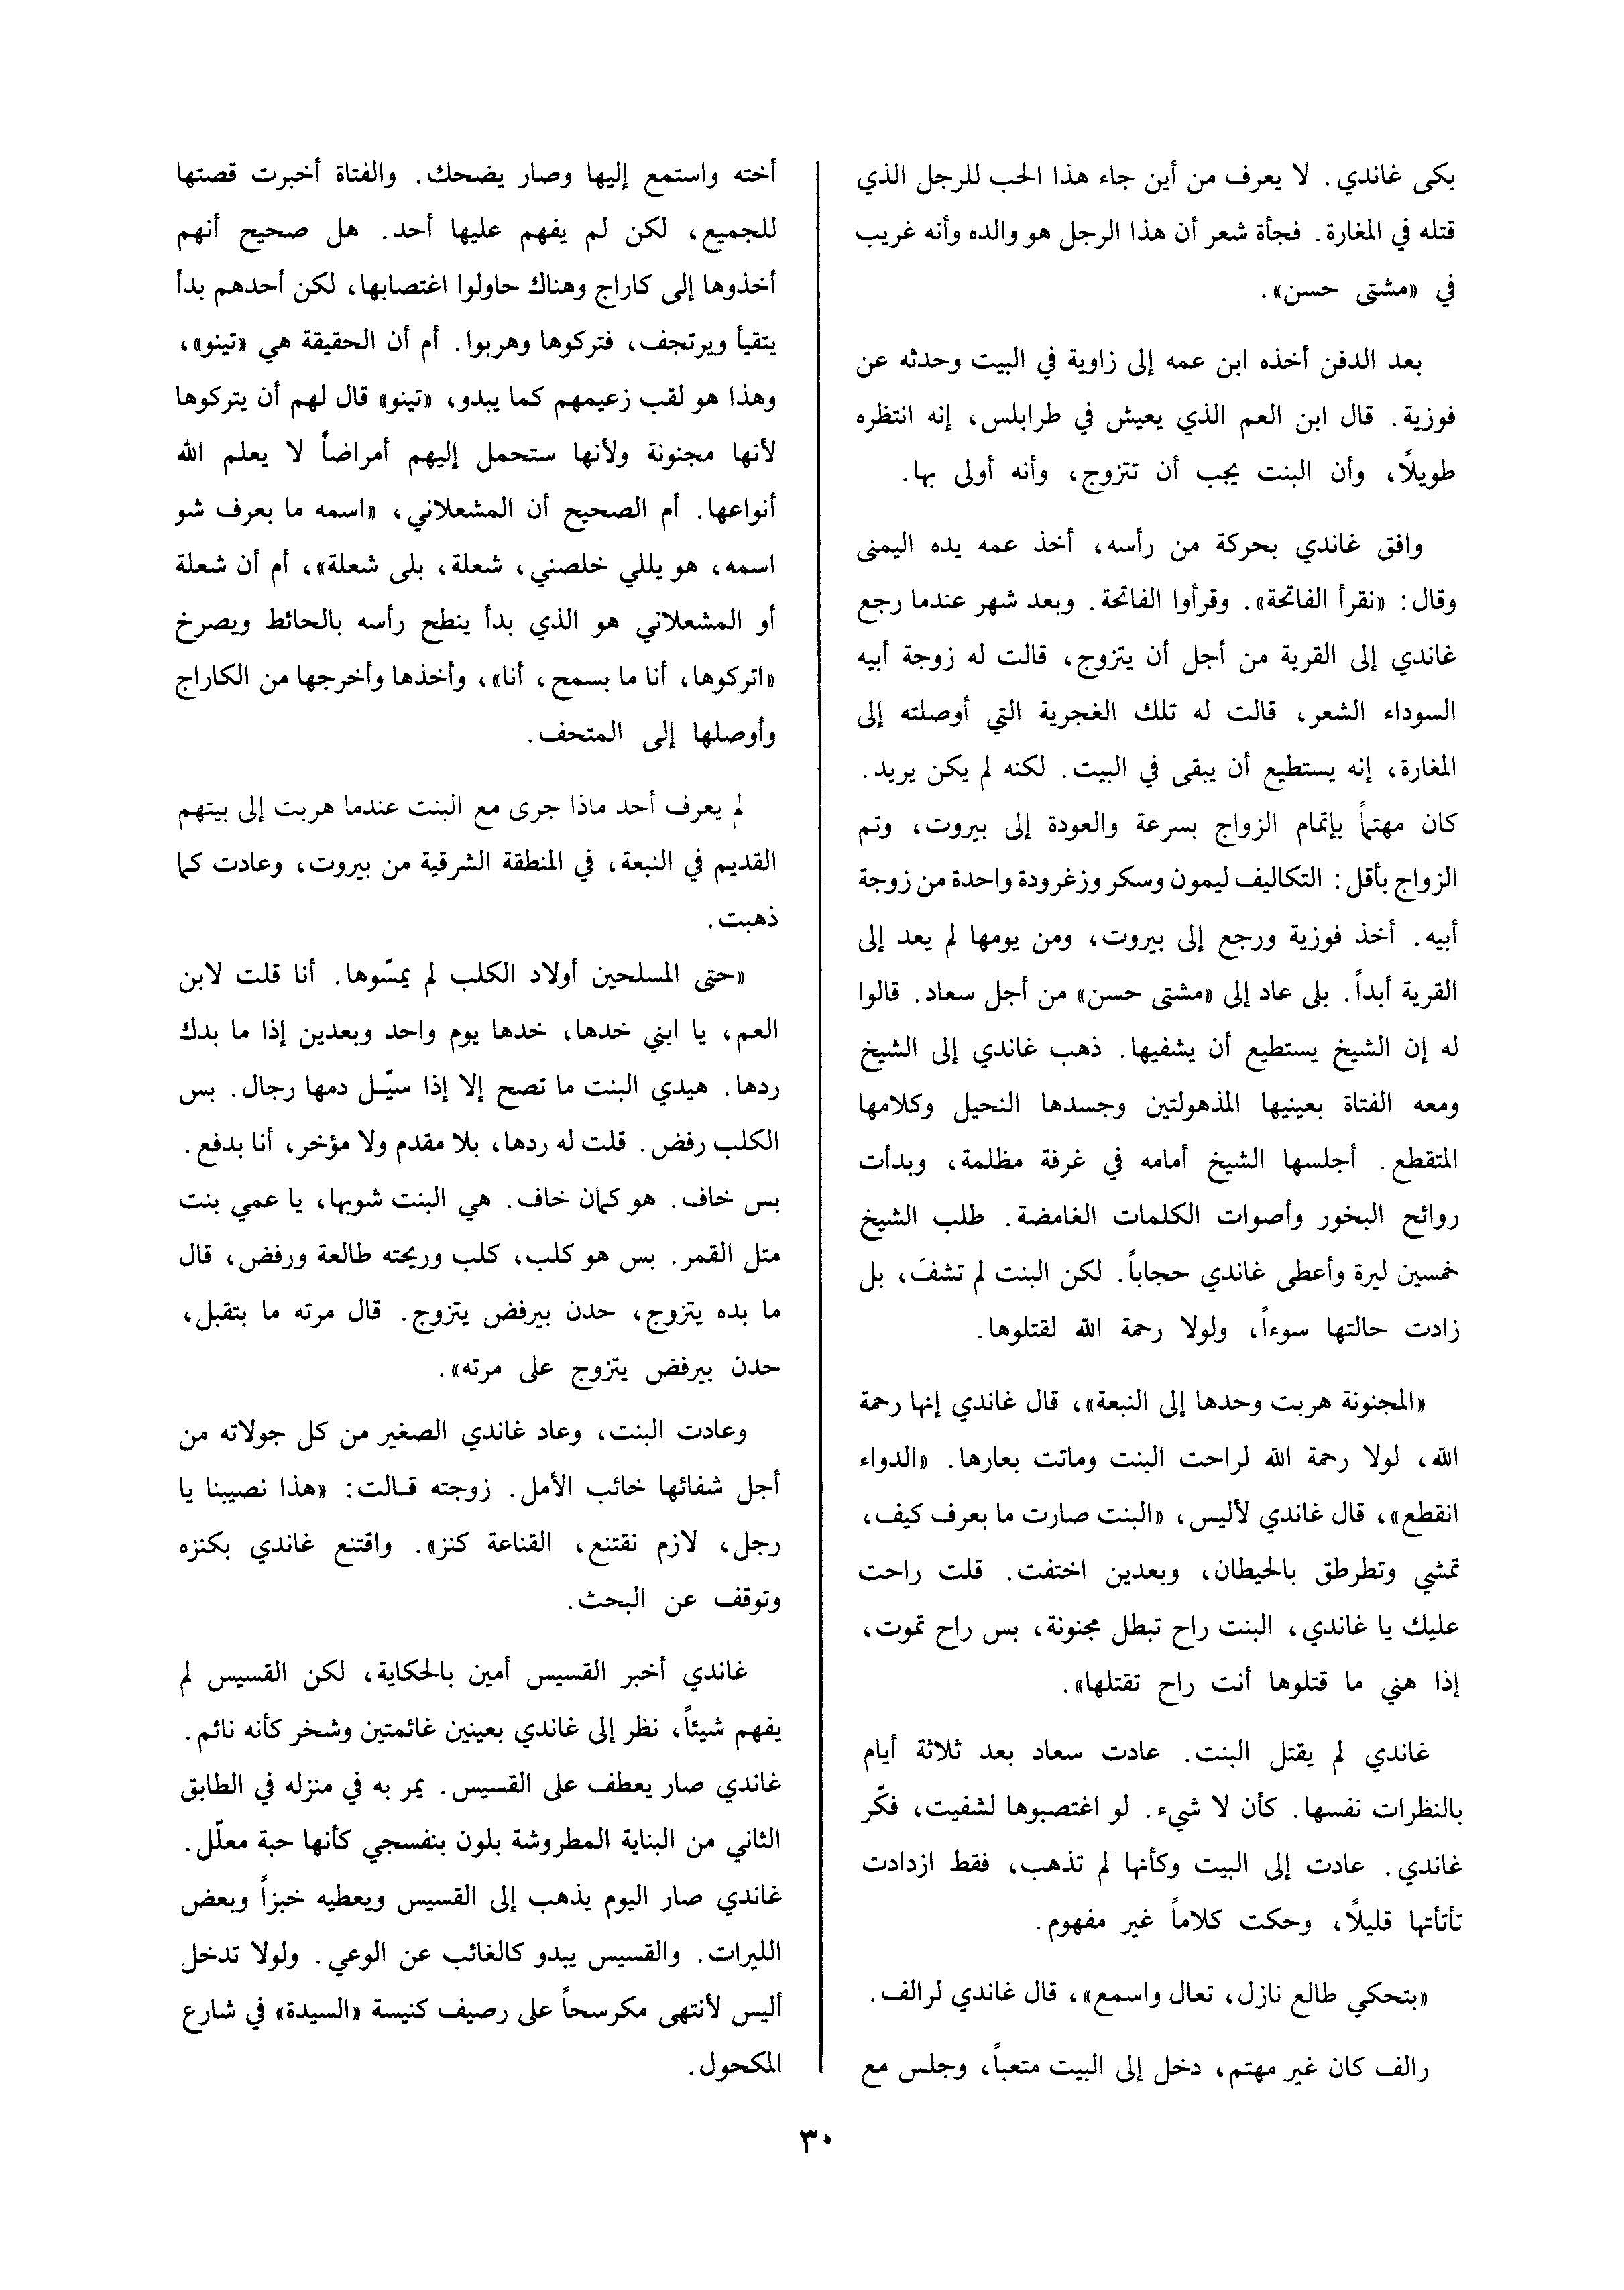 بكى غاندي. لا يعرف من أين جاء هذا الحب للرجل الذي
قتله في المغارة. فجأة شعر أن هذا الرجل هو والده وأنه غريب
في «مشتى حسن».
بعد الدفن أخذه ابن عمه إلى زاوية في البيت وحدثه عن
فوزية. قال ابن العم الذي يعيش في طرابلس، إنه انتظره
طويلاً، وأن البنت يجب أن تتزوج، وأنه أولى بها.
وافق غاندي بحركة من رأسه، أخذ عمه يده اليمنى
وقال: «نقرأ الفاتحة». وقرأوا الفاتحة. وبعد شهر عندما رجع
غاندي إلى القرية من أجل أن يتزوج، قالت له زوجة أبيه
السوداء الشعر، قالت له تلك الغجرية التي أوصلته إلى
المغارة، إنه يستطيع أن يبقى في البيت. لكنه لم يكن يريد.
كان مهتماً بإتمام الزواج بسرعة والعودة إلى بيروت، وتم
الزواج بأقل: التكاليف ليمون وسكر وزغرودة واحدة من زوجة
أبيه. أخذ فوزية ورجع إلى بيروت، ومن يومها لم يعد إلى
القرية أبداً. بلى عاد إلى «مشتى حسن» من أجل سعاد. قالوا
له إن الشيخ يستطيع أن يشفيها. ذهب غاندي إلى الشيخ
ومعه الفتاة بعينيها المذهولتين وجسدها النحيل وكلامها
المتقطع. أجلسها الشيخ أمامه في غرفة مظلمة، وبدأت
روائح البخور وأصوات الكلمات الغامضة. طلب الشيخ
خمسين ليرة وأعطى غاندي حجاباً. لكن البنت لم تشفَ، بل
زادت حالتها سوءاً، ولولا رحمة الله لقتلوها.
«المجنونة هربت وحدها إلى النبعة»، قال غاندي إنها رحمة
الله، لولا رحمة الله لراحت البنت وماتت بعارها. «الدواء
انقطع»، قال غاندي لأليس، «البنت صارت ما بعرف كيف،
تمشي وتطرطق بالحيطان، وبعدين اختفت. قلت راحت
عليك يا غاندي، البنت راح تبطل مجنونة، بس راح تموت،
إذا هني ما قتلوها أنت راح تقتلها».
غاندي لم يقتل البنت. عادت سعاد بعد ثلاثة أيام
بالنظرات نفسها. كأن لا شيء. لو اغتصبوها لشفيت، فكّر
غاندي. عادت إلى البيت وكأنها لم تذهب، فقط ازدادت
تأتأتها قليلاً، وحكت كلاماً غير مفهوم.
«بتحكي طالع نازل، تعال واسمع»، قال غاندي لرالف.
رالف كان غير مهتم، دخل إلى البيت متعباً، وجلس مع
أخته واستمع إليها وصار يضحك. والفتاة أخبرت قصتها
للجميع، لكن لم يفهم عليها أحد. هل صحيح أنهم
أخذوها إلى كاراج وهناك حاولوا اغتصابها، لكن أحدهم بدأ
يتقيأ ويرتجف، فتركوها وهربوا. أم أن الحقيقة هي «تينو»،
وهذا هو لقب زعيمهم كما يبدو، «تينو» قال لهم أن يتركوها
لأنها مجنونة ولأنها ستحمل إليهم أمراضاً لا يعلم الله
أنواعها. أم الصحيح أن المشعلاني، «اسمه ما بعرف شو
اسمه، هو يللي خلصني، شعلة، بلى شعلة»، أم أن شعلة
أو المشعلاني هو الذي بدأ ينطح رأسه بالحائط ويصرخ
«اتركوها، أنا ما بسمح، أنا»، وأخذها وأخرجها من الكاراج
وأوصلها إلى المتحف.
لم يعرف أحد ماذا جرى مع البنت عندما هربت إلى بيتهم
القديم في النبعة، في المنطقة الشرقية من بيروت، وعادت كما
ذهبت.
«حتى المسلحين أولاد الكلب لم يمسّوها. أنا قلت لابن
العم، يا ابني خدها، خدها يوم واحد وبعدين إذا ما بدك
ردها. هيدي البنت ما تصح إلا إذا سيّل دمها رجال. بس
الكلب رفض. قلت له ردها، بلا مقدم ولا مؤخر، أنا بدفع.
بس خاف. هو كمان خاف. هي البنت شوبها، يا عمي بنت
متل القمر. بس هو كلب، كلب وريحته طالعة ورفض، قال
ما بده يتزوج، حدن بيرفض يتزوج. قال مرته ما بتقبل،
حدن بيرفض يتزوج على مرته».
وعادت البنت، وعاد غاندي الصغير من كل جولاته من
أجل شفائها خائب الأمل. زوجته قالت: «هذا نصيبنا يا
رجل، لازم نقتنع، القناعة كنز». واقتنع غاندي بكنزه
وتوقف عن البحث.
غاندي أخبر القسيس أمين بالحكاية، لكن القسيس لم
يفهم شيئاً، نظر إلى غاندي بعينين غائمتين وشخر كأنه نائم.
غاندي صار يعطف على القسيس. يمر به في منزله في الطابق
الثاني من البناية المطروشة بلون بنفسجي كأنها حبة معلّل.
غاندي صار اليوم يذهب إلى القسيس ويعطيه خبزاً وبعض
الليرات. والقسيس يبدو كالغائب عن الوعي. ولولا تدخل
أليس لأنتهى مكرسحاً على رصيف كنيسة «السيدة» في شارع
المكحول.
٣٠